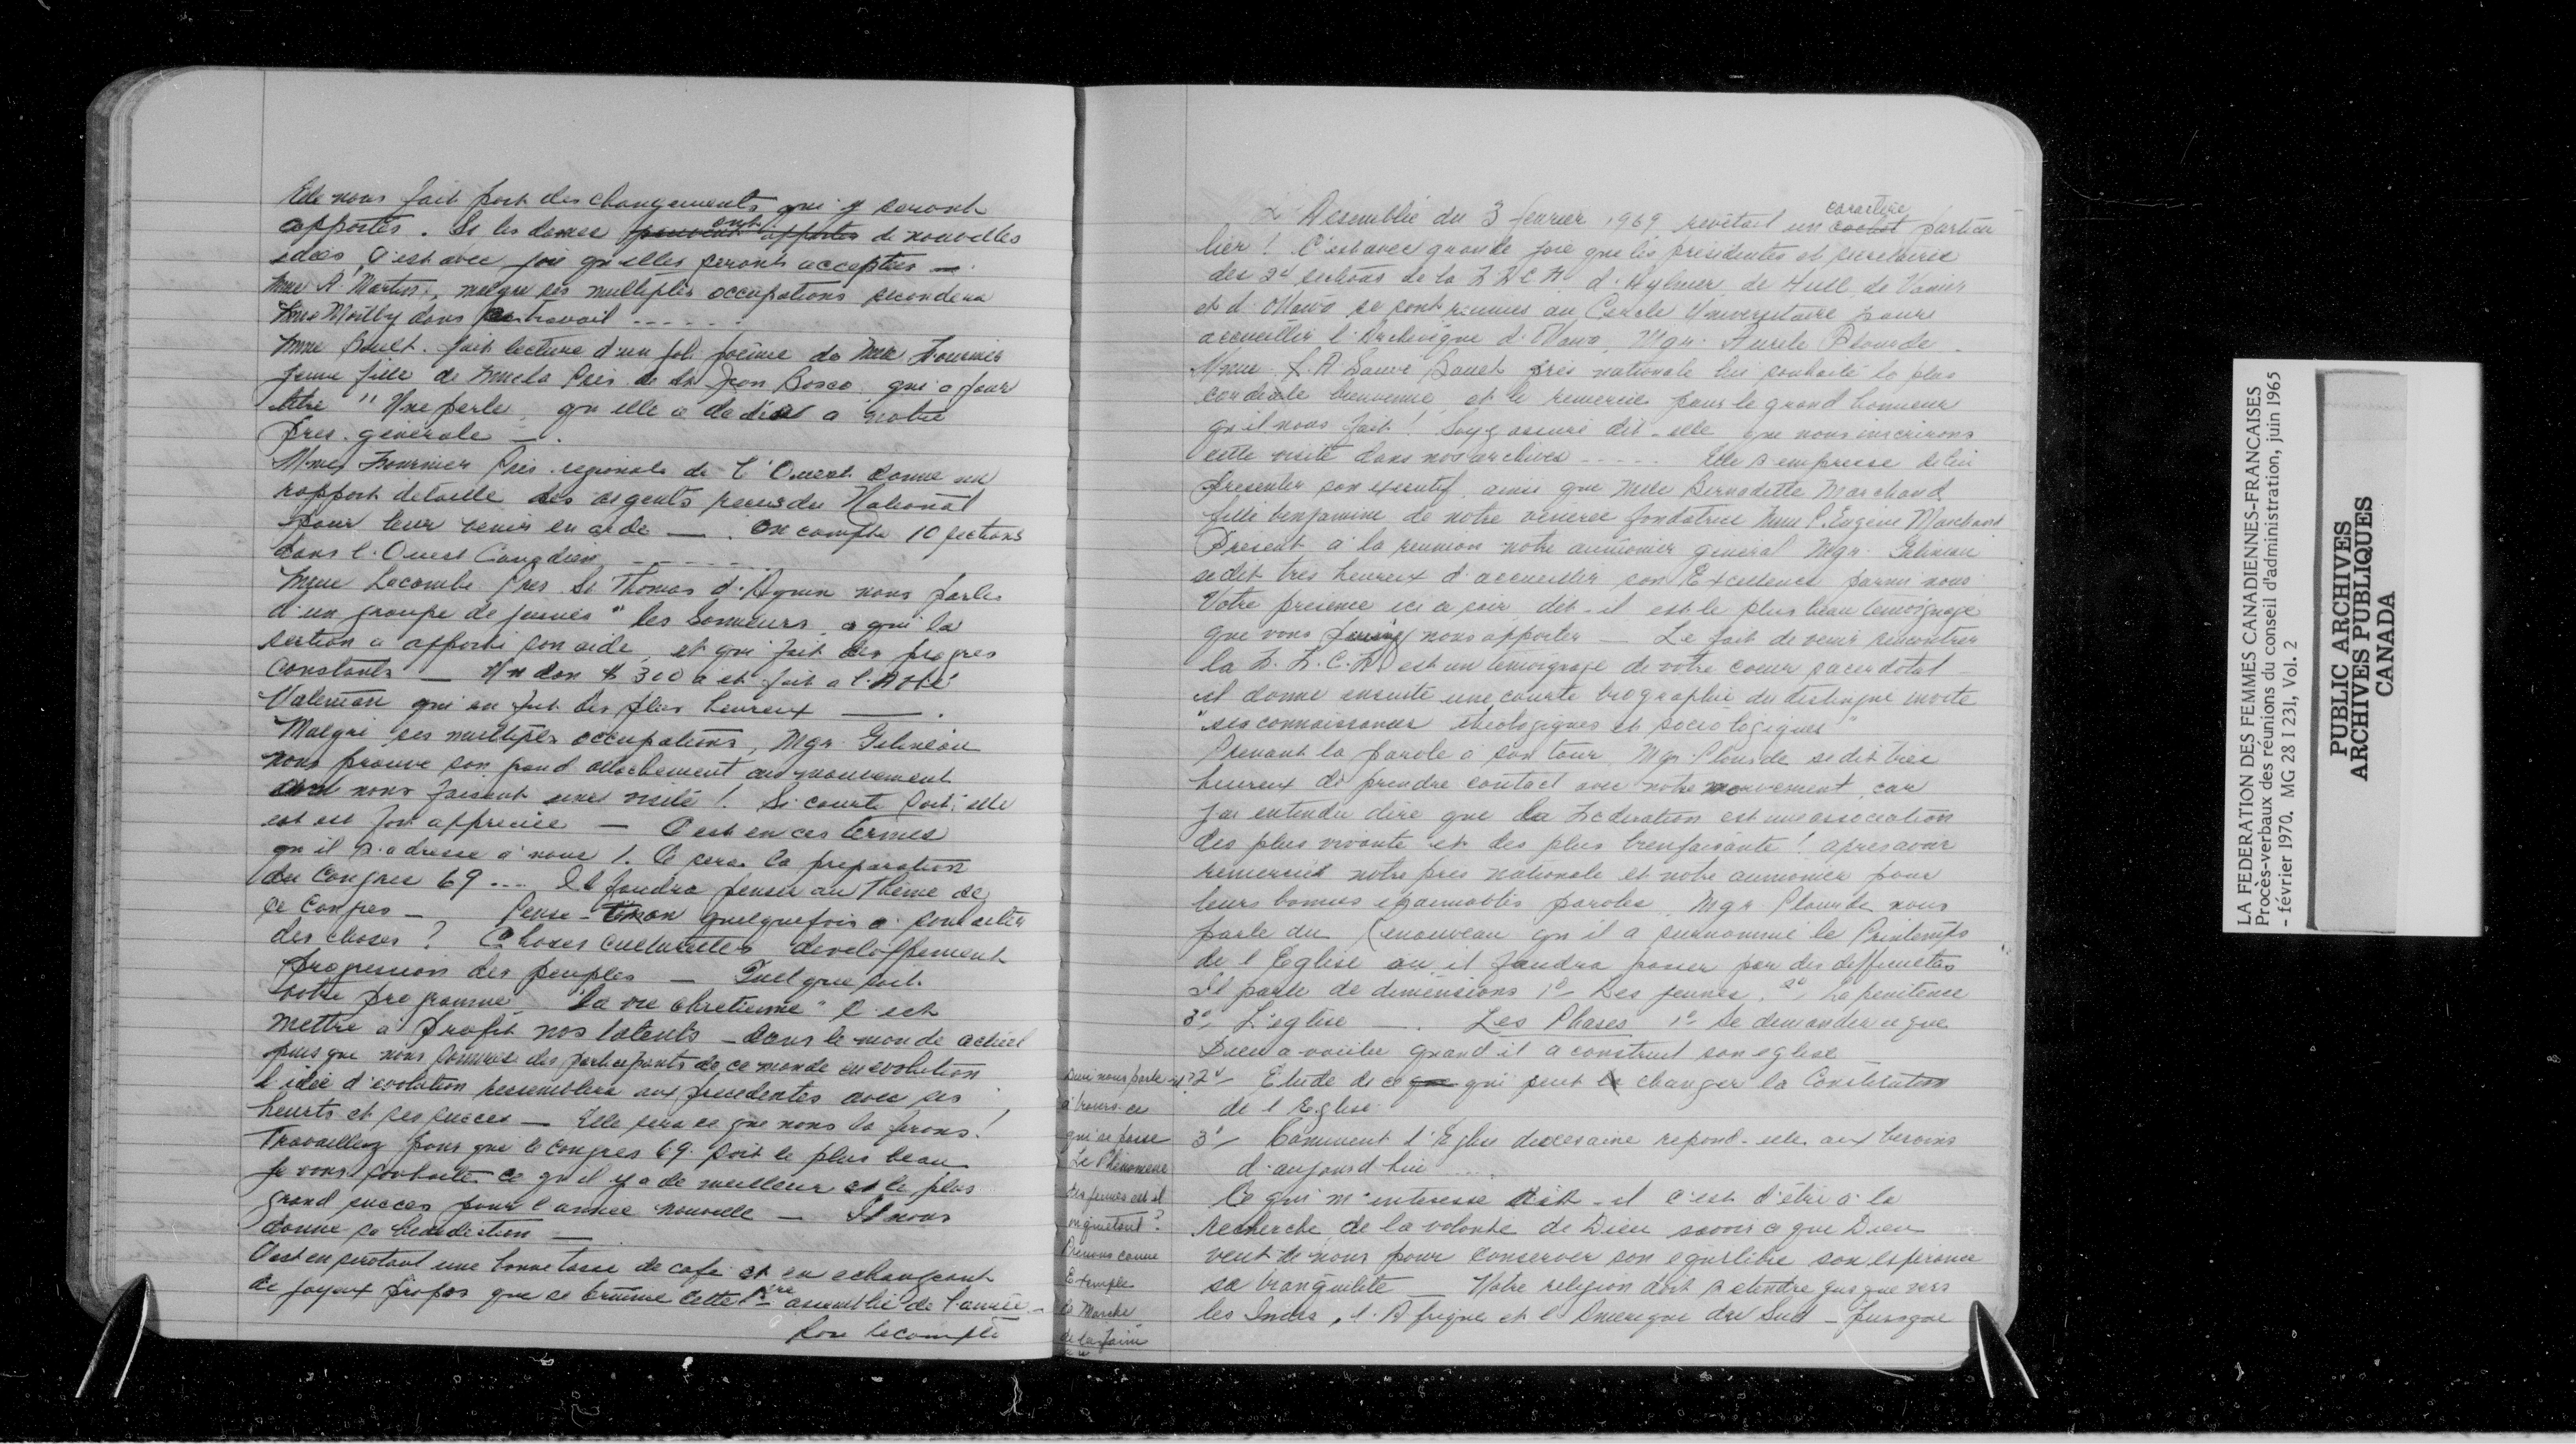 Elle nous fait part des changements qui y seront
apportés. Si les dames ont de nouvelles
idées, c'est avec joie qu'elles seront acceptées —
Mme A. Martin, malgré ses multiples occupations secondera
Mme Moilly dans travail ------
Mme Sauct. fait lecture d'un joli poème de Mlle Fournier
jeune fille de Mme la Prés. de St Jean Bosco, qui a pour
titre " Une perle, qu'elle a dédiée a notre
pres. générale —.
Mme Fournier Prés. regionale de l'Ouest donne un
rapport détaillé des argents recus du National
pour leur venir en aide —. On compte 10 sections
dans l'Ouest Canadien ------
Mme Lacombe Pres St Thomas d'Aquin nous parle
d'un groupe de jeunes " les Sonneurs a qui la
section a apporté son aide, et qui fait des progres
constants — Un don $ 300 a été fait a l'Abbé
qui en fut des plus heureux —.
Malgré ses multiples occupations, Mgr Gelineau
nous prouve son grand attachement au mouvement
nous faisant une visite! Si courte soit-elle
est fort appreciée — C'est en ces termes
qu'il s'adresse à nous! Ce sera la preparation
du Congres 69 --- Il faudra penser au Thème de
ce Congres — Pense-t-on quelquefois a
des choses? Choses culturelles developpement
progression des peuples — Quel que soit
votre programme "la vie chretienne" c'est
mettre à profit nos talents - dans le monde actuel
puis que nous sommes des participants de ce monde en evolution
l'idée d'evolution ressemblera aux precedentes avec ses
heurts et ses succes — Elle sera ce que nous la ferons!
Travaillez pour que le congres 69 soit le plus beau
Je vous souhaite ce qu'il y a de meilleur et le plus
grand succes pour l'année nouvelle — Il nous
donne sa benediction —
C'est en sirotant une bonne tasse de café et en echangeant
de joyeux propos que se termine cette 1ière assemblée de l'année -
Lecompte
L'Assemblée du 3 fevrier 1969 revêtait un caractère cachet particu
lier! C'est avec grande joie que les présidentes et secretaires
des 24 sections de la F.F.C.F. d'Aylmer, de Hull, de Vanier
et d'Ottawa se sont reunies au Cercle Universitaire pour
accueillir l'Archevêque d'Ottawa, Mgr. Aurele Plourde.
Mme L.A Sauvé pres nationale lui souhaite la plus
cordiale bienvenue, et le remercie pour le grand honneur
qu'il nous fait! Soyez assuré dit-elle que nous inscrirons
cette visite dans nos archives ----- Elle s'empresse de lui
presenter son executif, ainsi que Mlle Bernadette Marchand
fille benjamine de notre vénérée fondatrice Mme P. Eugène Marchand
Présent à la reunion notre aumonier général Mgr. Gelineau
se dit très heureux d'accueillir son Excellence parmi nous
Votre presence ici ce soir, dit-il est le plus beau temoignage
que vous puissiez nous apporter — Le fait de venir rencontrer
la F.F.C.F. est un temoignage de votre coeur sacerdotal
il donne ensuite une courte biographie du distingué invité
"ses connaissances théologiques et sociologiques"
Prenant la parole a son tour, Mgr Plourde se dit très
heureux de prendre contact avec notre mouvement, car
j'ai entendu dire que la Fédération est une association
des plus vivante et des plus bienfaisante! apres avoir
remercié notre pres nationale et notre aumonier pour
leurs bonnes et aimables paroles, Mgr Plourde nous
parle du renouveau qu'il a surnommé le Printemps
de l'Eglise ou il faudra passer par des difficultés
Il parle de dimensions 1º- Les jeunes. 2º- La penitence
3º- L'eglise —. Les Phases 1º- Se demander ce que
Dieu a voulu quand il a construit son eglise —
2º- Etude de ce qui peut changer la Constitution
de l'Eglise.
3º- Comment l'Eglise diocesaine repond-elle aux besoins
d'aujourd'hui ----
Ce qui m'interesse dit-il c'est d'être à la
recherche de la volonté de Dieu savoir ce que Dieu
veut de nous pour conserver son equilibre son esperance
sa tranquilité — Notre religion doit s'etendre jusque vers
les Indes, l'Afrique et l'Amerique du Sud - Jusque
nous parle-t-il
à travers ce
qui se passe
Le Phénomène
des jeunes est-il
inquiétant?
Prenons comme
Exemple
la Marche
de la faim
LA FEDERATION DES FEMMES CANADIENNES-FRANCAISES
Procès-verbaux des réunions du conseil d'administration, juin 1965
- février 1970. MG 28 I 231, Vol. 2
PUBLIC ARCHIVES
ARCHIVES PUBLIQUES
CANADA